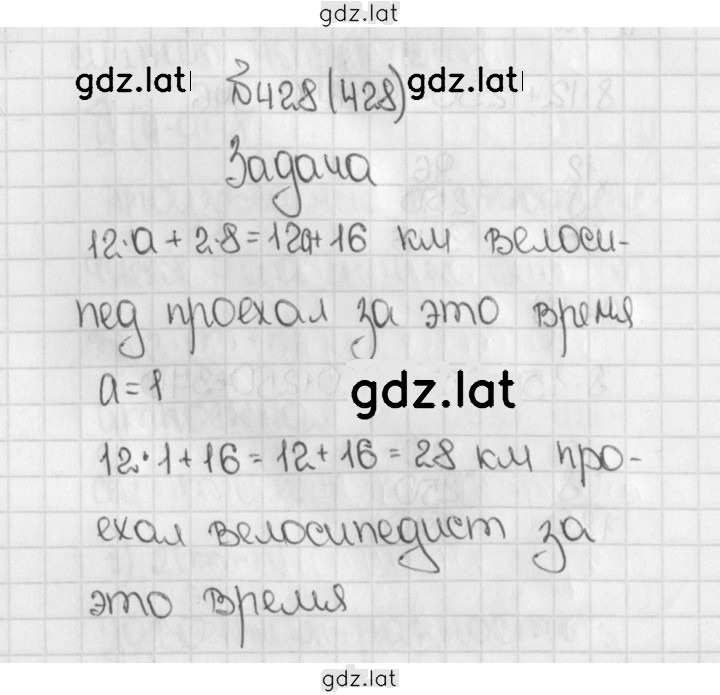 gdz.lat
gdz.lat №428 (428) gdz.lat
Задача
12·a + 2·8 = 12a + 16 км велоси-
пед проехал за это время
a = 1
gdz.lat
12·1 + 16 = 12 + 16 = 28 км про-
ехал велосипедист за
это время
gdz.lat